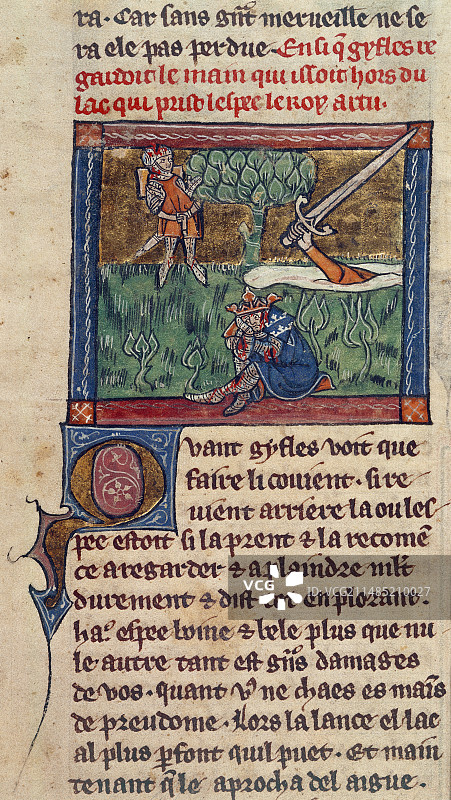 ra. Car sans gñt merveille ne se
ra ele pas perdue. En si q̃ gyfles re
gardoit le main qui issoit hors du
lac qui prist lespee le roy artu.
Quant gyfles voit que
faire li couient. si re
uient arriere la ou les
pee estoit si la prent & la recomẽ
ce a regarder & a plaindre ml't
durement & dist en plorant.
ha. espee boine & bele plus que nu
le autre tant est gñs damages
de vos. quant vꝰ ne chaes es maĩs
de preudome. Lors la lance el lac
al plus ꝑfont quil puet. Et main
tenant q̃ le aprocha del aigue.
VCG
VCG.COM